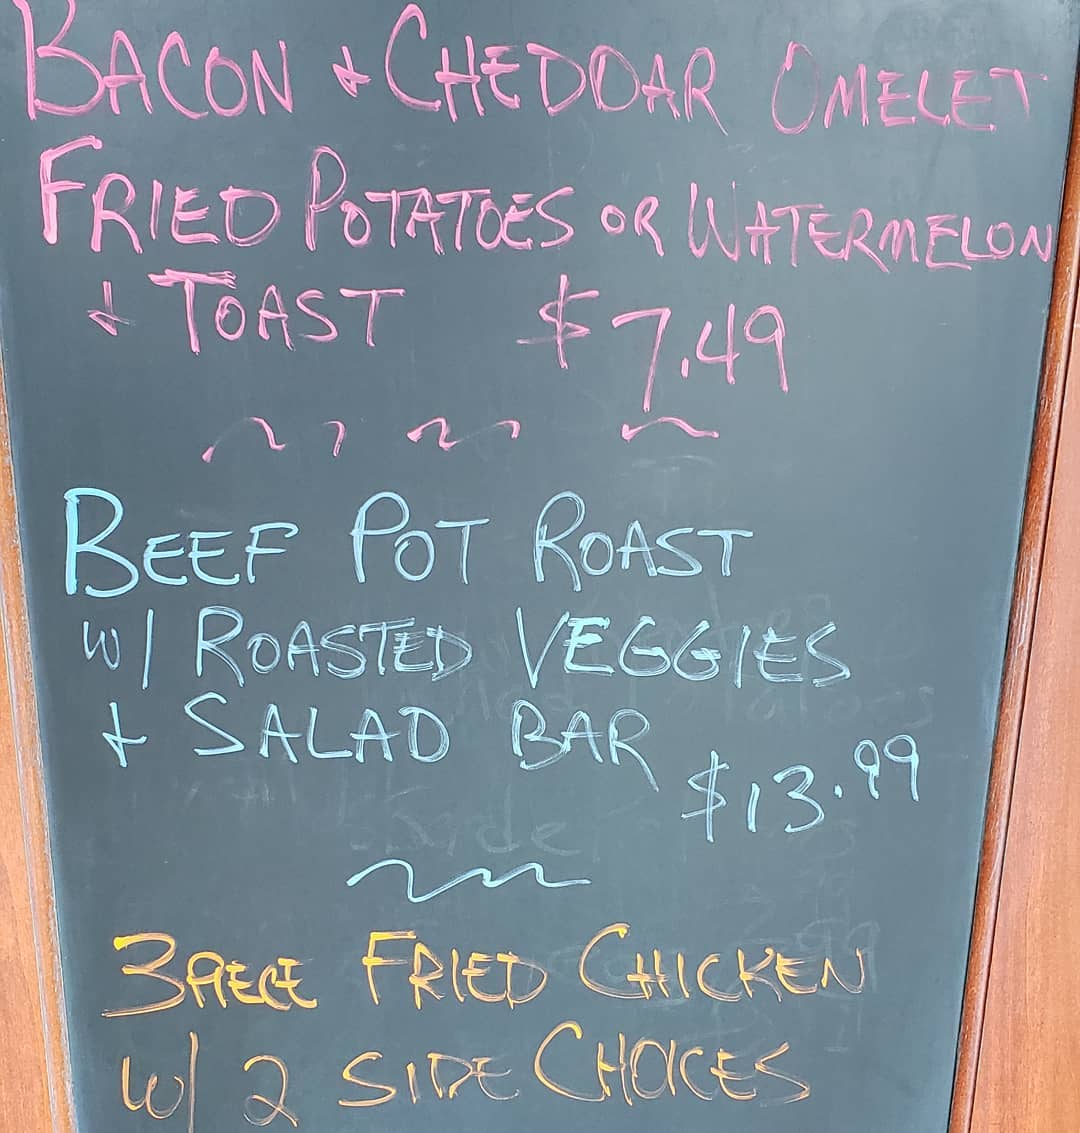 BACON + CHEDDAR OMELET
FRIED POTATOES OR WATERMELON
+ TOAST $7.49
BEEF POT ROAST
W/ ROASTED VEGGIES
+ SALAD BAR $13.99
3 PIECE FRIED CHICKEN
W/ 2 SIDE CHOICES